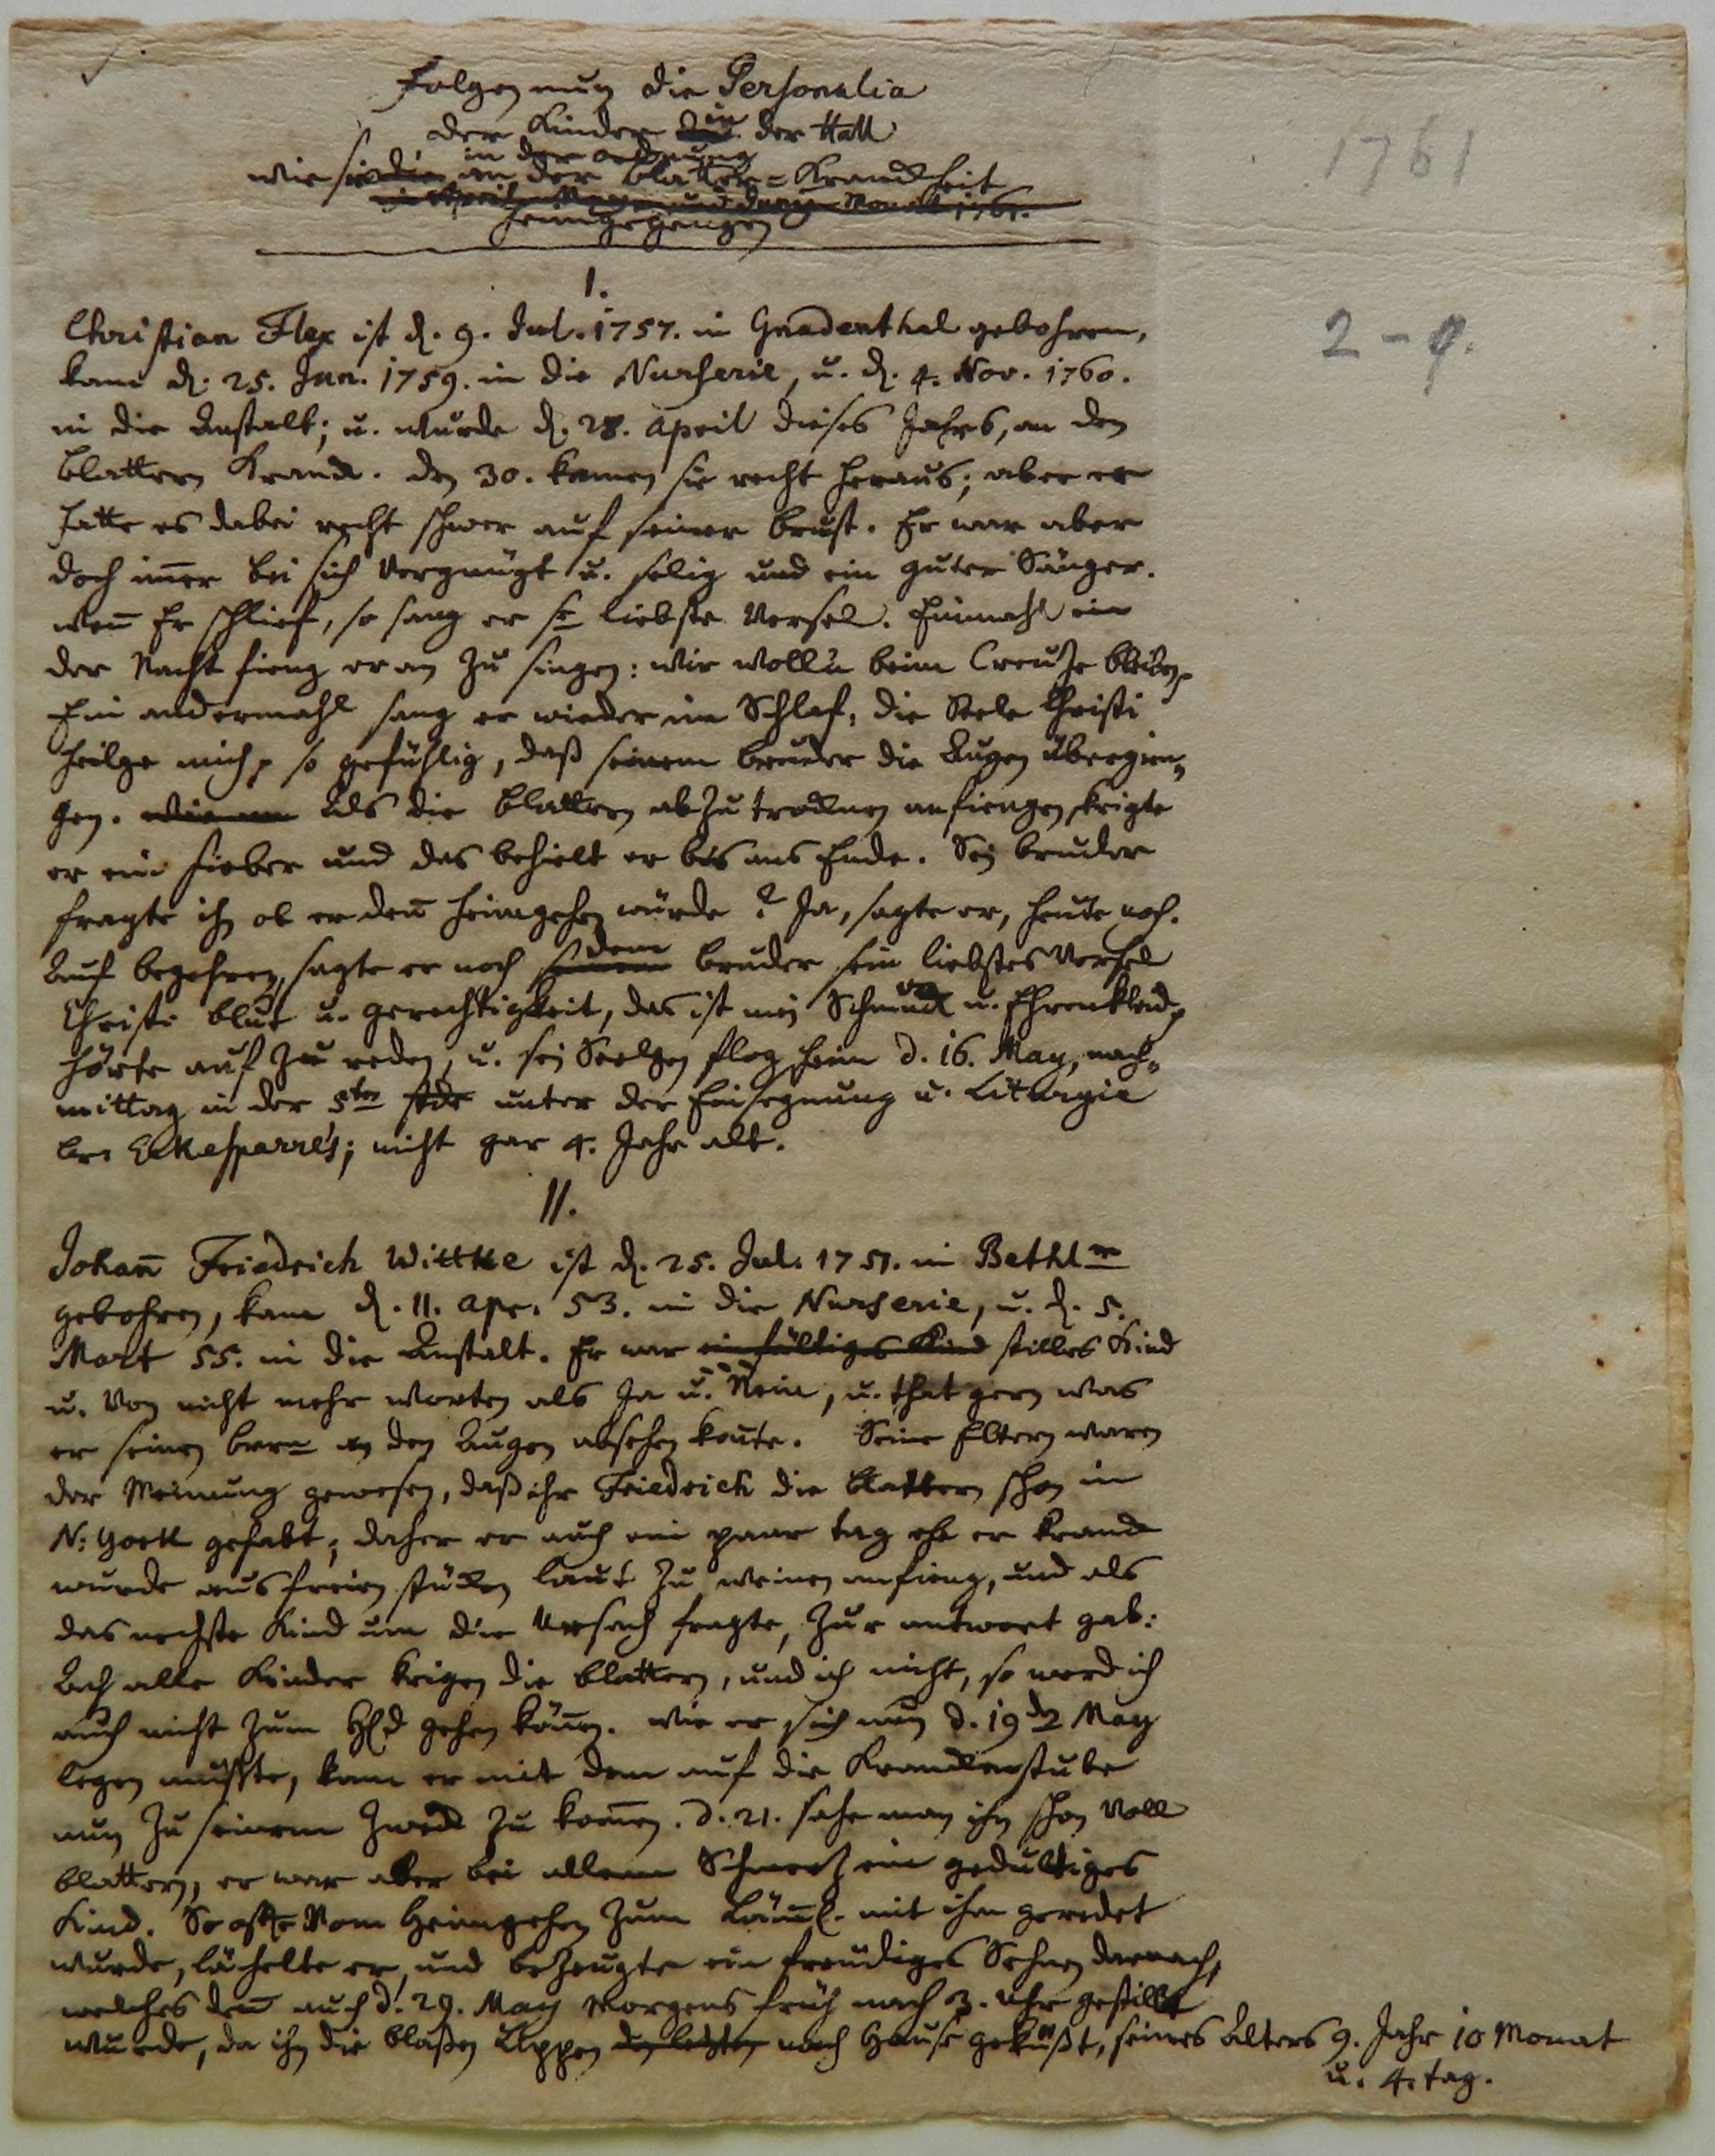 Folgen nun die Personalia
der Kinder in der Hall
in der ordnung
wie sie an der Blatter-Kranckheit
in April, May und Juny Monath 1761.
heimgegangen
1761
2-9.
I.
Christian Flex ist d. 9. Jul. 1757. in Gnadenthal gebohren,
kam d. 25. Jun. 1759. in die Nurserie, u. d. 4. Nov. 1760.
in die Anstalt; u. wurde d. 28. April dieses Jahrs, an den
Blattern Kranck. den 30. kamen sie recht heraus; aber er
hatte es dabei recht schwer auf seiner Brust. Er war aber
doch im̄er bei sich vergnügt u. selig und ein guter Sänger.
wen̄ Er schlief, so sang er se liebste Versel. Einmahl in
der Nacht fieng er an zu singen: wir woll'n beim Creutze bleiben
Ein andermahl sang er wieder im Schlaf, die Seele Christi
heilge mich, so gefühlig, daß seinem Bruder die Augen übergien-
gen. Als die Blattern abzutrocknen anfiengen, krigte
er ein Fieber und das behielt er bis ans Ende. Sein Bruder
fragte ihn ob er den̄ heimgehen würde? Ja, sagte er, heute noch.
Auf begehren, sagte er noch seinem dem Bruder sein liebstes Versel
Christi Blut u. Gerechtigkeit, das ist mein Schmuck u. Ehrenkleid
hörte auf zu reden, u. sein Seelgen flog heim d. 16. May, nach-
mittag in der 5ten stde unter der Einsegnung u. Liturgie
br. Eckesparre's; nicht gar 4. Jahr alt.
II.
Johan̄ Friedrich Wittke ist d. 25. Jul. 1751. in Bethlm
gebohren, kam d. 11. Apr. 53. in die Nurserie, u. d. 5.
Mart 55. in die Anstalt. Er war einfältiges Kind stilles Kind
u. von nicht mehr worten als Ja u. Nein, u. that gern was
er seinen brrn an den Augen absehen kon̄te. Seine Eltern waren
der Meinung gewesen, daß ihr Friedrich die Blattern schon in
N: York gehabt; daher er auch ein paar tag ehe er kranck
wurde aus freien stücken laut zu weinen anfieng, und als
das nechste Kind um die Ursach fragte, zur antwort gab:
Ach alle Kinder krigen die Blattern, und ich nicht, so werd ich
auch nicht zum Hld gehen kön̄en. wie er sich nun d. 19 May
legen mußte, kam er mit dem auf die Kranckenstube
nun zu seinem Zweck zu kom̄en. d. 21. sahe man ihn schon voll
Blattern, er war aber bei allem Schmertz ein gedultiges
Kind. So oft vom Heimgehen zum Läm̄l. mit ihm geredet
wurde, lächelte er, und bezeugte ein freudiges Sehnen darnach,
welches den̄ auch d. 29. May Morgens früh nach 3. Uhr gestillt
wurde, da ihn die blaßen Lippen nach Hause geküßt, seines Alters 9. Jahr 10 Monat
u. 4. tag.